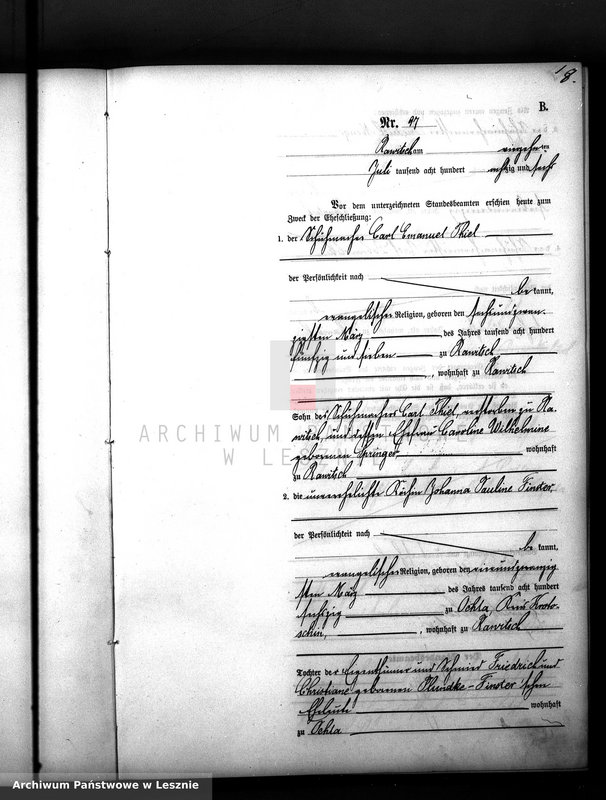 18.
B.
Nr. 97
Rawitsch am
Juli tausend acht hundert achtzig und sechs
Vor dem unterzeichneten Standesbeamten erschien heute zum
Zweck der Eheschließung:
1. der Schuhmacher Carl Emanuel Thiel
der Persönlichkeit nach
be kannt,
evangelischer Religion, geboren den sechsundzwan-
zigsten März des Jahres tausend acht hundert
fünfzig und sieben zu Rawitsch
, wohnhaft zu Rawitsch
Sohn des Schuhmachers Carl Thiel, verstorben zu Ra-
witsch, und dessen Ehefrau Caroline Wilhelmine
geborenen Springer wohnhaft
zu Rawitsch
2. die unverehelichte Köchin Johanna Pauline Finster,
der Persönlichkeit nach
be kannt,
evangelischer Religion, geboren den einundzwanzig
sten März des Jahres tausend acht hundert
sechszig zu Ochla, Kreis Kroto-
schin, , wohnhaft zu Rawitsch
Tochter der Eigenthümer und Schmied Friedrich und
Christiane geborenen Finster'schen
Eheleute wohnhaft
zu Ochla
ARCHIWUM PAŃSTWOWE
W LESZNIE
Archiwum Państwowe w Lesznie